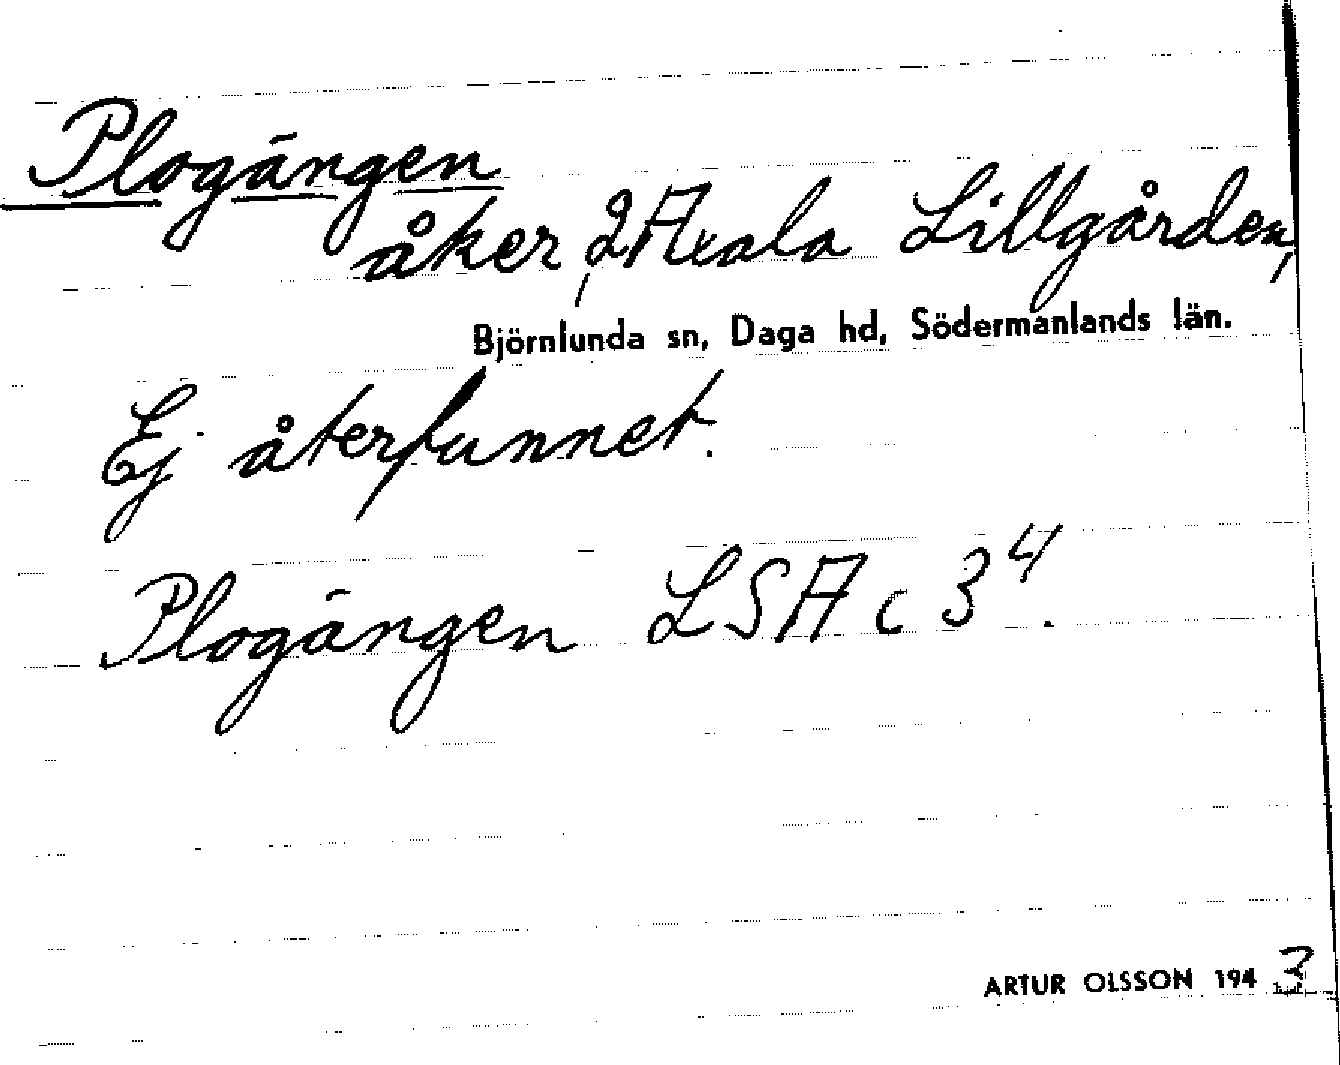 Plogängen
åker, 2 Axala Lillgården,
Björnlunda sn, Daga hd, Södermanlands län.
Ej återfunnet.
Plogängen LSA c 3⁴.
ARTUR OLSSON 1943